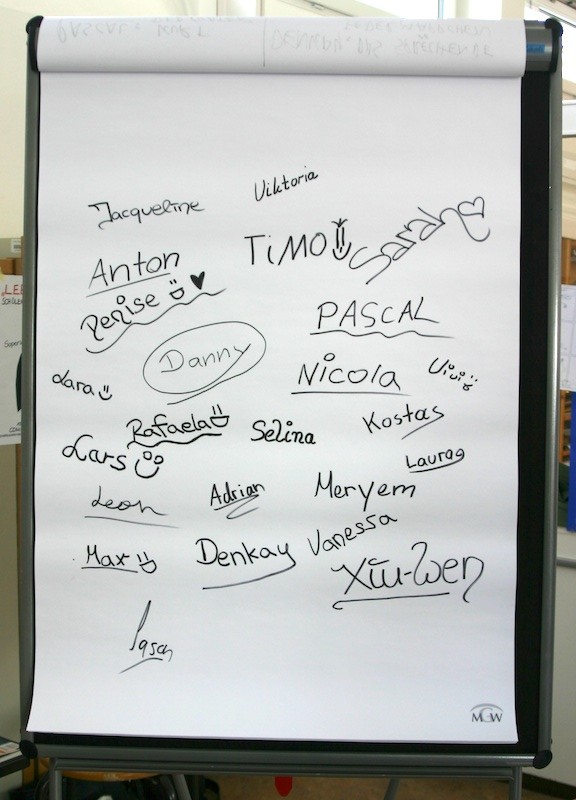 Jacqueline
Viktoria
TiMO
Sarah
Anton
Denise
PASCAL
Danny
Nicola
Lara
Vivi
Rafaela
Selina
Kostas
Lars
Laura
Leon
Adrian
Meryem
Max
Denkay
Vanessa
Xiu-Wen
MGW